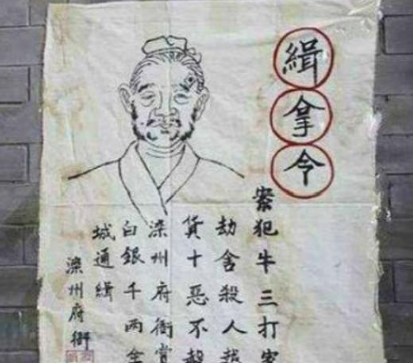 緝拿令
案犯牛三打家
劫舍殺人
貨十惡不赦
灤州府衙賞
白銀千兩全
城通緝
灤州府衙